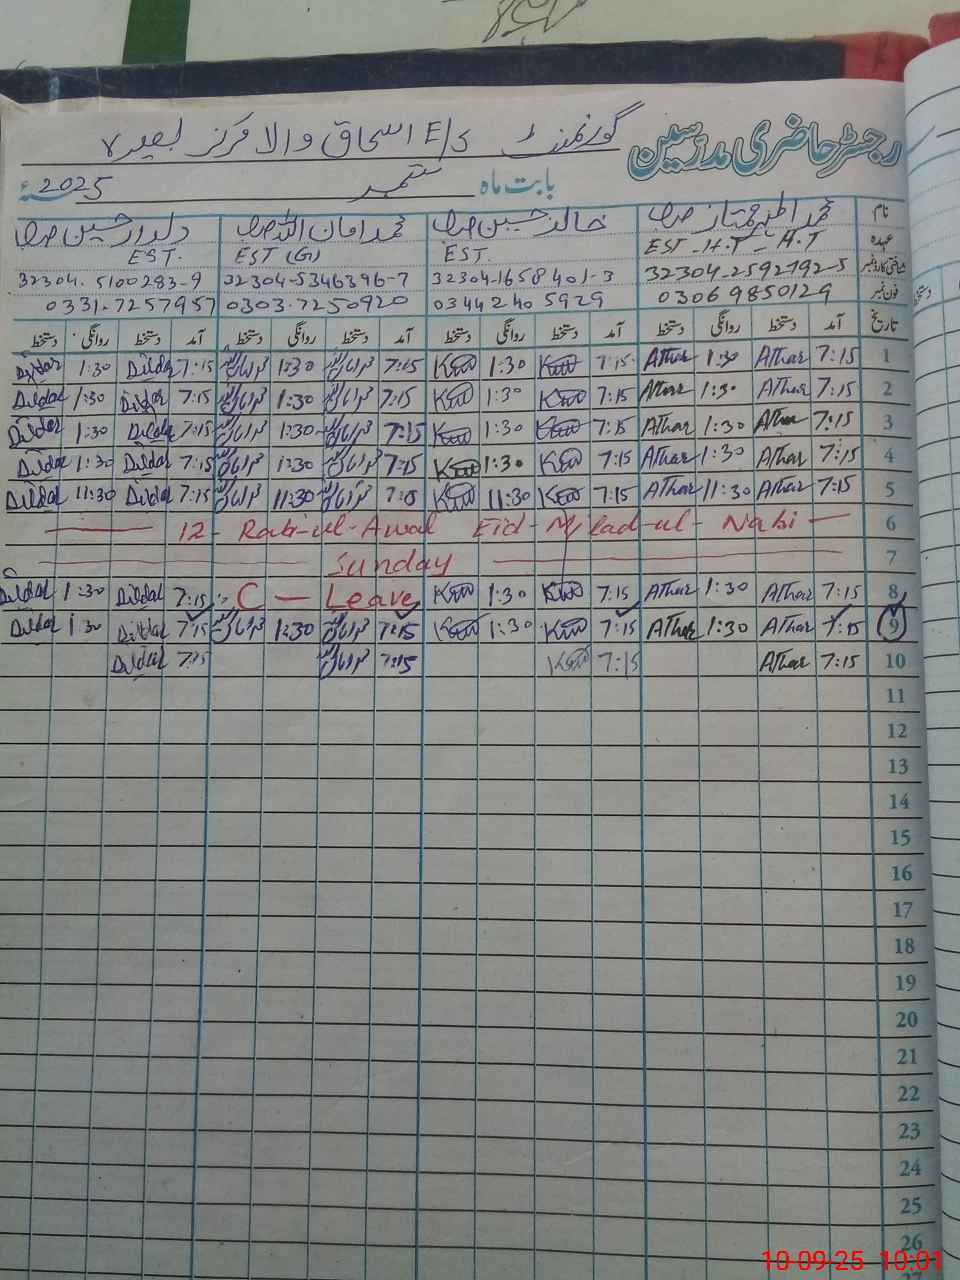 رجسٹر حاضری مدرسین گورنمنٹ E/S اسحاق والا مرکز بصیرہ
بابت ماہ ستمبر 2025ء
نام محمد اطہر ممتاز صاحب خالد حسین صاحب محمد امان اللہ صاحب دلدار حسین صاحب
عہدہ EST - H.T - H.T EST. EST (G) EST.
شناختی کارڈ نمبر 32304-2592792-5 32304-1658401-3 32304-5346396-7 32304-5100283-9
فون نمبر 03069850129 03442405929 0303-7250920 0331-7257957
تاریخ آمد دستخط روانگی دستخط آمد دستخط روانگی دستخط آمد دستخط روانگی دستخط آمد دستخط روانگی دستخط
1 7:15 Athar 1:30 Athar 7:15 1:30 7:15 1:30 7:15 Dildar 1:30 Dildar
2 7:15 Athar 1:30 Athar 7:15 1:30 7:15 1:30 7:15 Dildar 1:30 Dildar
3 7:15 Athar 1:30 Athar 7:15 1:30 7:15 1:30 7:15 Dildar 1:30 Dildar
4 7:15 Athar 1:30 Athar 7:15 1:30 7:15 1:30 7:15 Dildar 1:30 Dildar
5 7:15 Athar 11:30 Athar 7:15 11:30 7:15 11:30 7:15 Dildar 11:30 Dildar
12 - Rabi-ul-Awal Eid-Milad-ul-Nabi 6
Sunday 7
8 7:15 Athar 1:30 Athar 7:15 1:30 C — Leave 7:15 Dildar 1:30 Dildar
9 7:15 Athar 1:30 Athar 7:15 1:30 7:15 1:30 7:15 Dildar 1:30 Dildar
10 7:15 Athar 7:15 7:15 7:15 Dildar
11
12
13
14
15
16
17
18
19
20
21
22
23
24
25
26
10-09-25 10:01